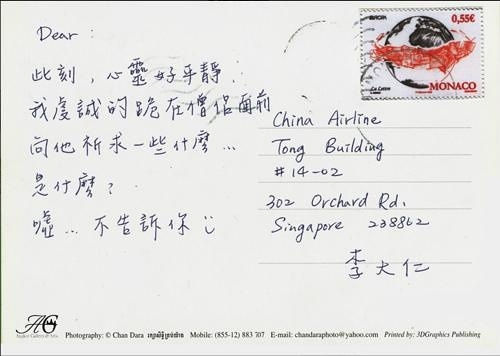 Dear :
此刻，心靈好平靜．
我虔誠的跪在僧侶面前
向他祈求一些什麼…
是什麼？
噓…不告訴你
EUROPA
0,55€
La Lettre
MONACO
China Airline
Tong Building
#14-02
302 Orchard Rd.
Singapore 238862
李大仁
AG
Photography: © Chan Dara
Mobile: (855-12) 883 707
E-mail: chandaraphoto@yahoo.com
Printed by: 3DGraphics Phnompenh